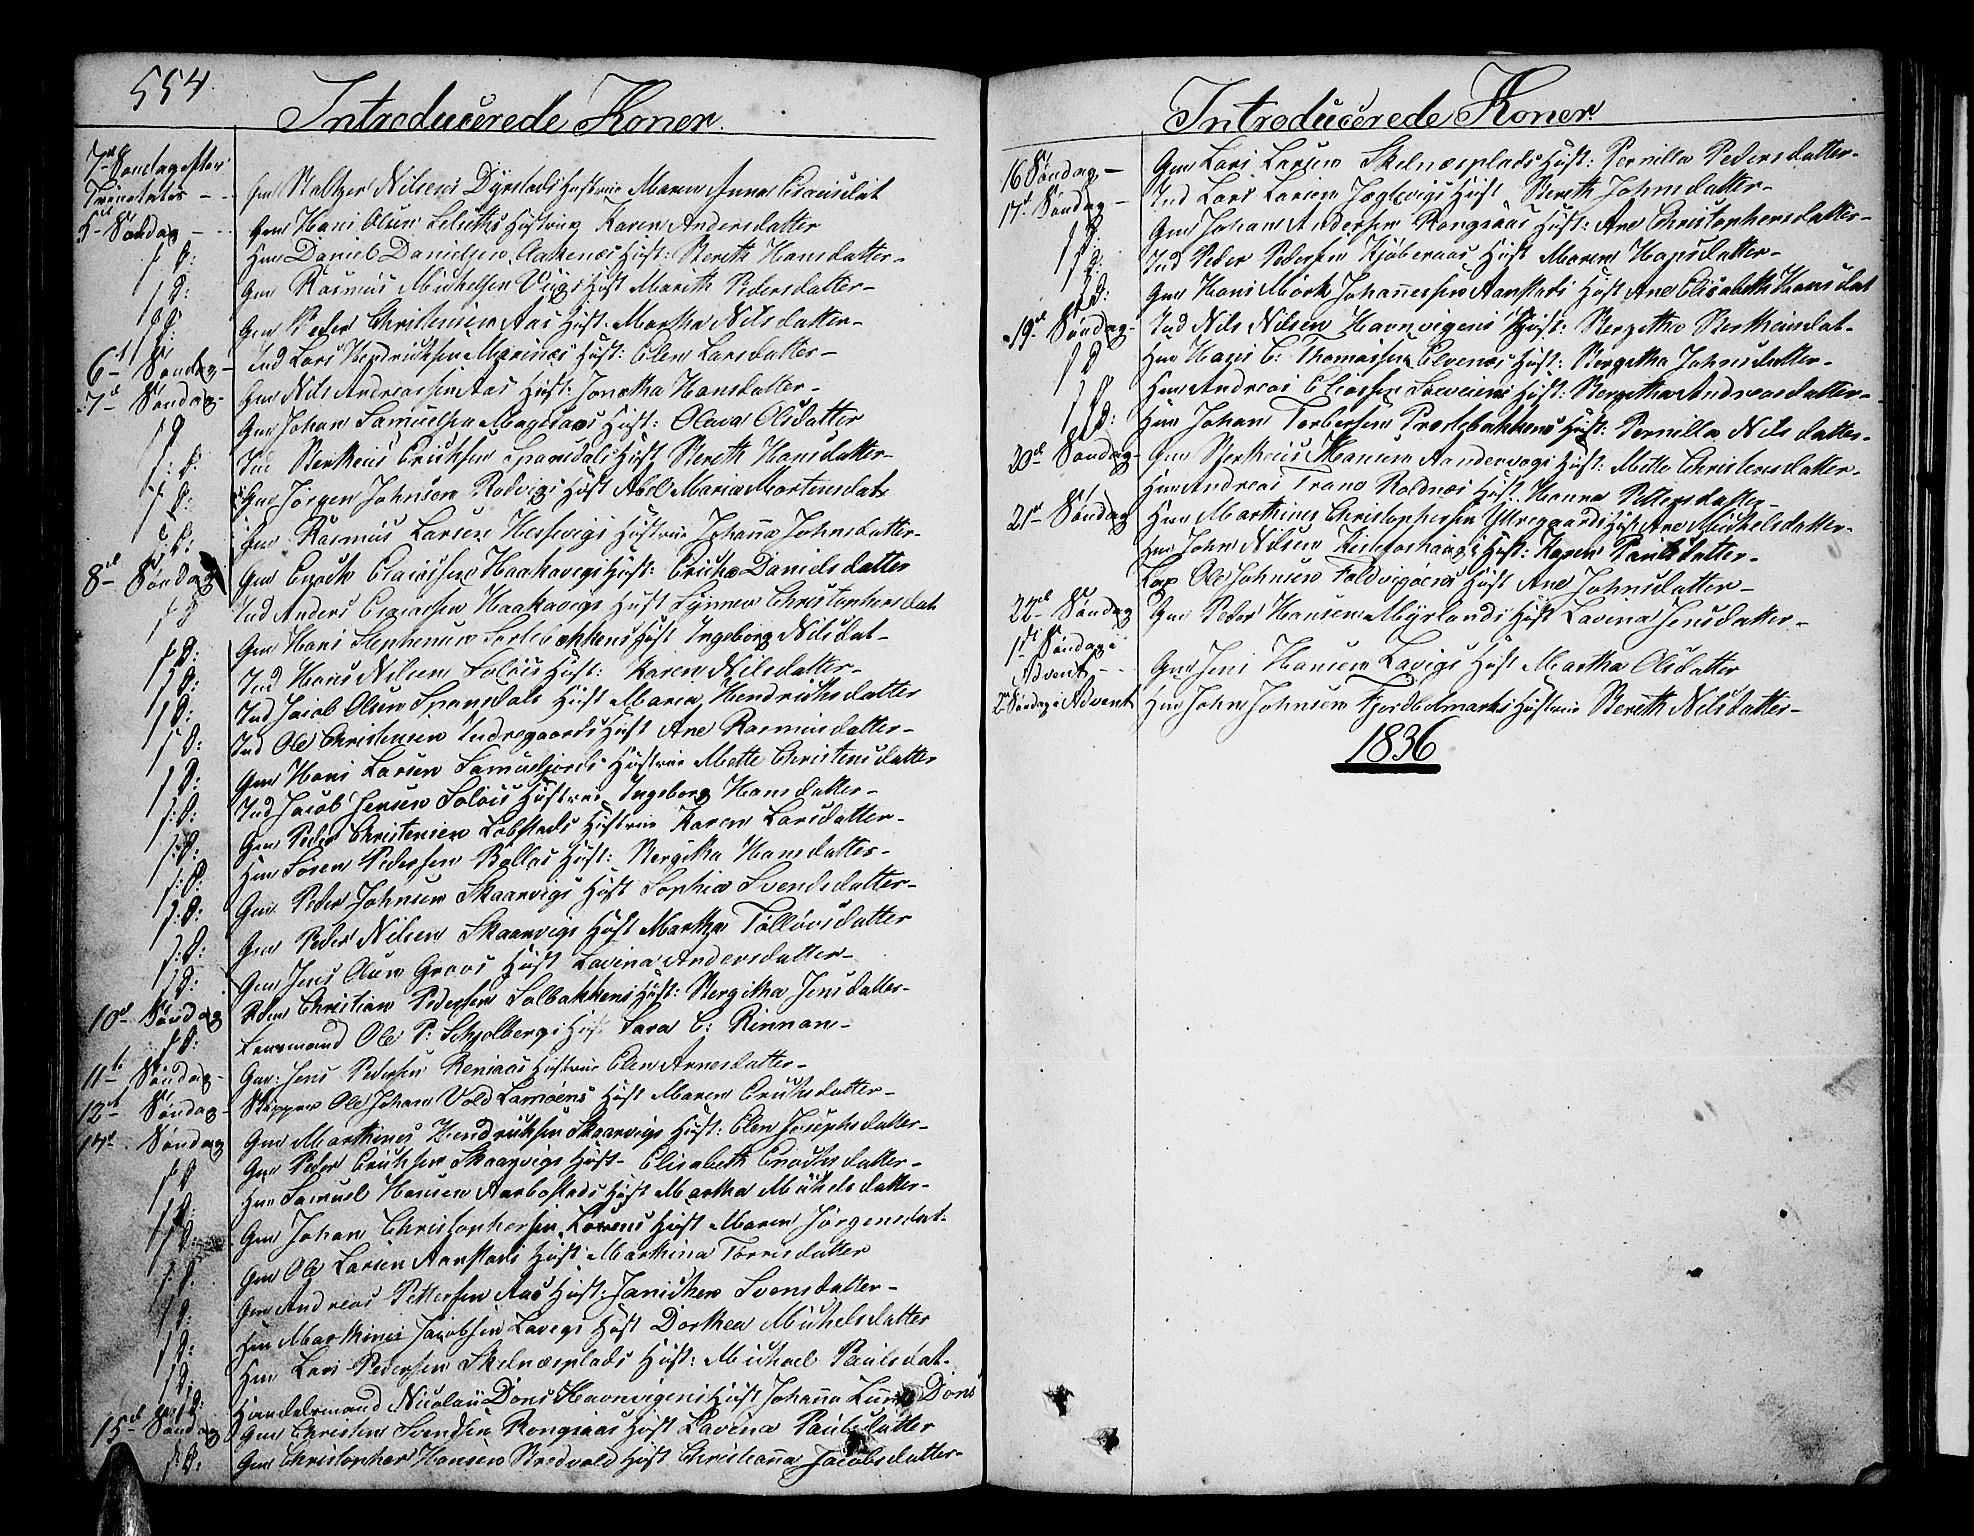 554.
Introducerede Koner
7de Søndag efter
Trinitatis - - Gm Baltzer Nilsens Dyrstads Hustrue Maren Anna Esaiasdat
5te Søndag - - Gm Hans Olsen Hustrue Karen Andersdatter
s. D: Hm Daniel Danielsen Aakenæs Hust: Bereth Hansdatter-
s D: Gm Rasmus Michelsen Hust Marith Pedersdatter-
s D: Gm Peder Christensen Aas Hust: Martha Nilsdatter-
6te Søndag - Ind Lars Hendriksen Hust: Elen Larsdatter-
7de Søndag - Gm Nils Andreassen Aas Hust: Jonetha Hansdatter-
s D Gm Johan Samuelsen Hust: Olava Olsdatter
s: D: Ind Bertheus Eriksen Spansdals Hust Bereth Hansdatter-
s D: Gm Jørgen Johnsen Rodvigs Hust Abel Maria Martinsdat
s: D: Gm Rasmus Larsen Hustrue Johaña Johnsdatter-
8de Søndag Gm Enoch Esaiassen Haakavigs Hust: Ericka Danielsdatter
s D Ind Anders Esaiassen Haakavigs Hust Synnev Christophersdat
s D: Gm Hans Stephensen Hust Ingeborg Nilsdat-
s D: Ind Hans Nilsen Soløis Hust: Karen Nilsdatter-
s D: Ind Jacob Olsen Spansdals Hust Maren Hendrichsdatter
s D: Ind Ole Christensen Indregaards Hust Ane Rasmusdatter-
s D: Gm Hans Larsen Hustrue Mette Christensdatter
s: D: Ind Jacob Jensen Soløis Hustrue Ingeborg Hansdatter-
s: D: Gm Peder Christensen Hustrue Karen Larsdatter-
s: D: Hm Søren Pedersen Hust: Bergitha Hansdatter-
s: D: Gm Peder Johnsen Skaarvigs Hust Sophia Svendsdatter-
s: D: Gm Peder Nilsen Skaarvigs Hust Martha Tølløvsdatter
s D: Gm Jens Olsen Hust Lavina Andersdatter-
10de Søndag Christian Pedersen Solbakkens Hust: Bergitha Jensdatter-
s D: Lensmand Ole P: Schjelbergs Hust Sara C: Rinnan-
11te Søndag - Gm: Jens Pedersen Hustrue Elen Arnesdatter-
12te Søndag - Skipper Ole Johan Vold Lamøens Hust Maren Erichsdatter-
14de Søndag Gm Marthines Hendriksen Skaarvigs Hust: Elen Josephsdatter-
s. D Gm Peder Eriksen Skaarvigs Hust- Elisabeth Enochsdatter-
s D: Hm Samuel Hansen Aarbostads Hust Martha Michelsdatter-
s D: Gm Johan Christophersen Hust Maren Jørgensdat-
s: D. Gm Ole Larsen Aanstads Hust Marthina Torrisdatter
s D: Gm Andreas Pettersen Aas Hust: Janichen Svensdatter-
s D: Hm Marthines Jacobsen Lavigs Hust Dorthea Michelsdatter
s D: Hm Lars Pedersen Skelnæsplads Hust: Michael Paulsdat-
s D: Handelsmand Nicolaii Dons Havnvigens Hust Johaña Lund Dons
15de Søndag Gm Christen Svendsen Rongsaas Hust Lavina Paulsdatter
s: D: Gm Christopher Hansen Bredvold Hust Christiaña Jacobsdatter-
Introducerede Koner
16 Søndag - Gm Lars Larsen Skelnæsplads Hust: Pernilla Pedersdatter-
17de Søndag - Ind Lars Larsen Hust Bereth Johnsdatter-
s D: Gm Johan Andersen Rongsaas Hust: Ane Christophersdatter-
s D: Ind Peder Pedersen Kjøberaas Hust Maren Hansdatter-
s D: Gm Hans Mørk Johannessen Aanstads Hust Ane Elisabeth Hansdat
19de Søndag - Ind Nils Nilsen Havnvigens Hust: Bergitha Bertheusdat-
s D Hm Hans C: Thomassen Elvenæs Hust: Bergitha Johnsdatter-
s D Hm Andreas Eliassen Hust: Bergitha Andreasdatter-
s D: Hm Johan Torbersen Prestebakkens Hust: Pernilla Nilsdatter-
20de Søndag - Gm Bertheus Hansen Aandervogs Hust: Mette Christensdatter-
Hm Andreas Trana Roldnæs Hust. Hanna Pettersdatter-
21de Søndag Hm Marthines Christophersen Yttregaards Hust Ane Michelsdatter-
Hm John Nilsen Hust: Karen Paulsdatter-
Lap Ole Johnsen Foldvigøiens Hust Ane Johnsdatter-
22de Søndag Gm Peder Hansen Myrlands Hust Lavina Jensdatter-
1ste Søndag i
Advent - - Gm Jens Hansen Lavigs Hust Martha Olsdatter
2. Søndag i Advent Hm John Johnsen Hustrue Bereth Nilsdatter-
1836